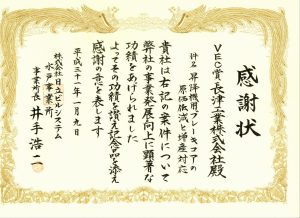 感謝状
VEC賞 長津工業株式会社殿
件名 昇降機用ブレーキコアの
原価低減と増産対応
貴社は右記の案件について
弊社の事業発展向上に顕著な
功績をあげられました
よってその功績を讃え記念品を添え
感謝の意を表します
平成三十一年一月九日
株式会社日立ビルシステム
水戸事業所
事業所長 井手浩二